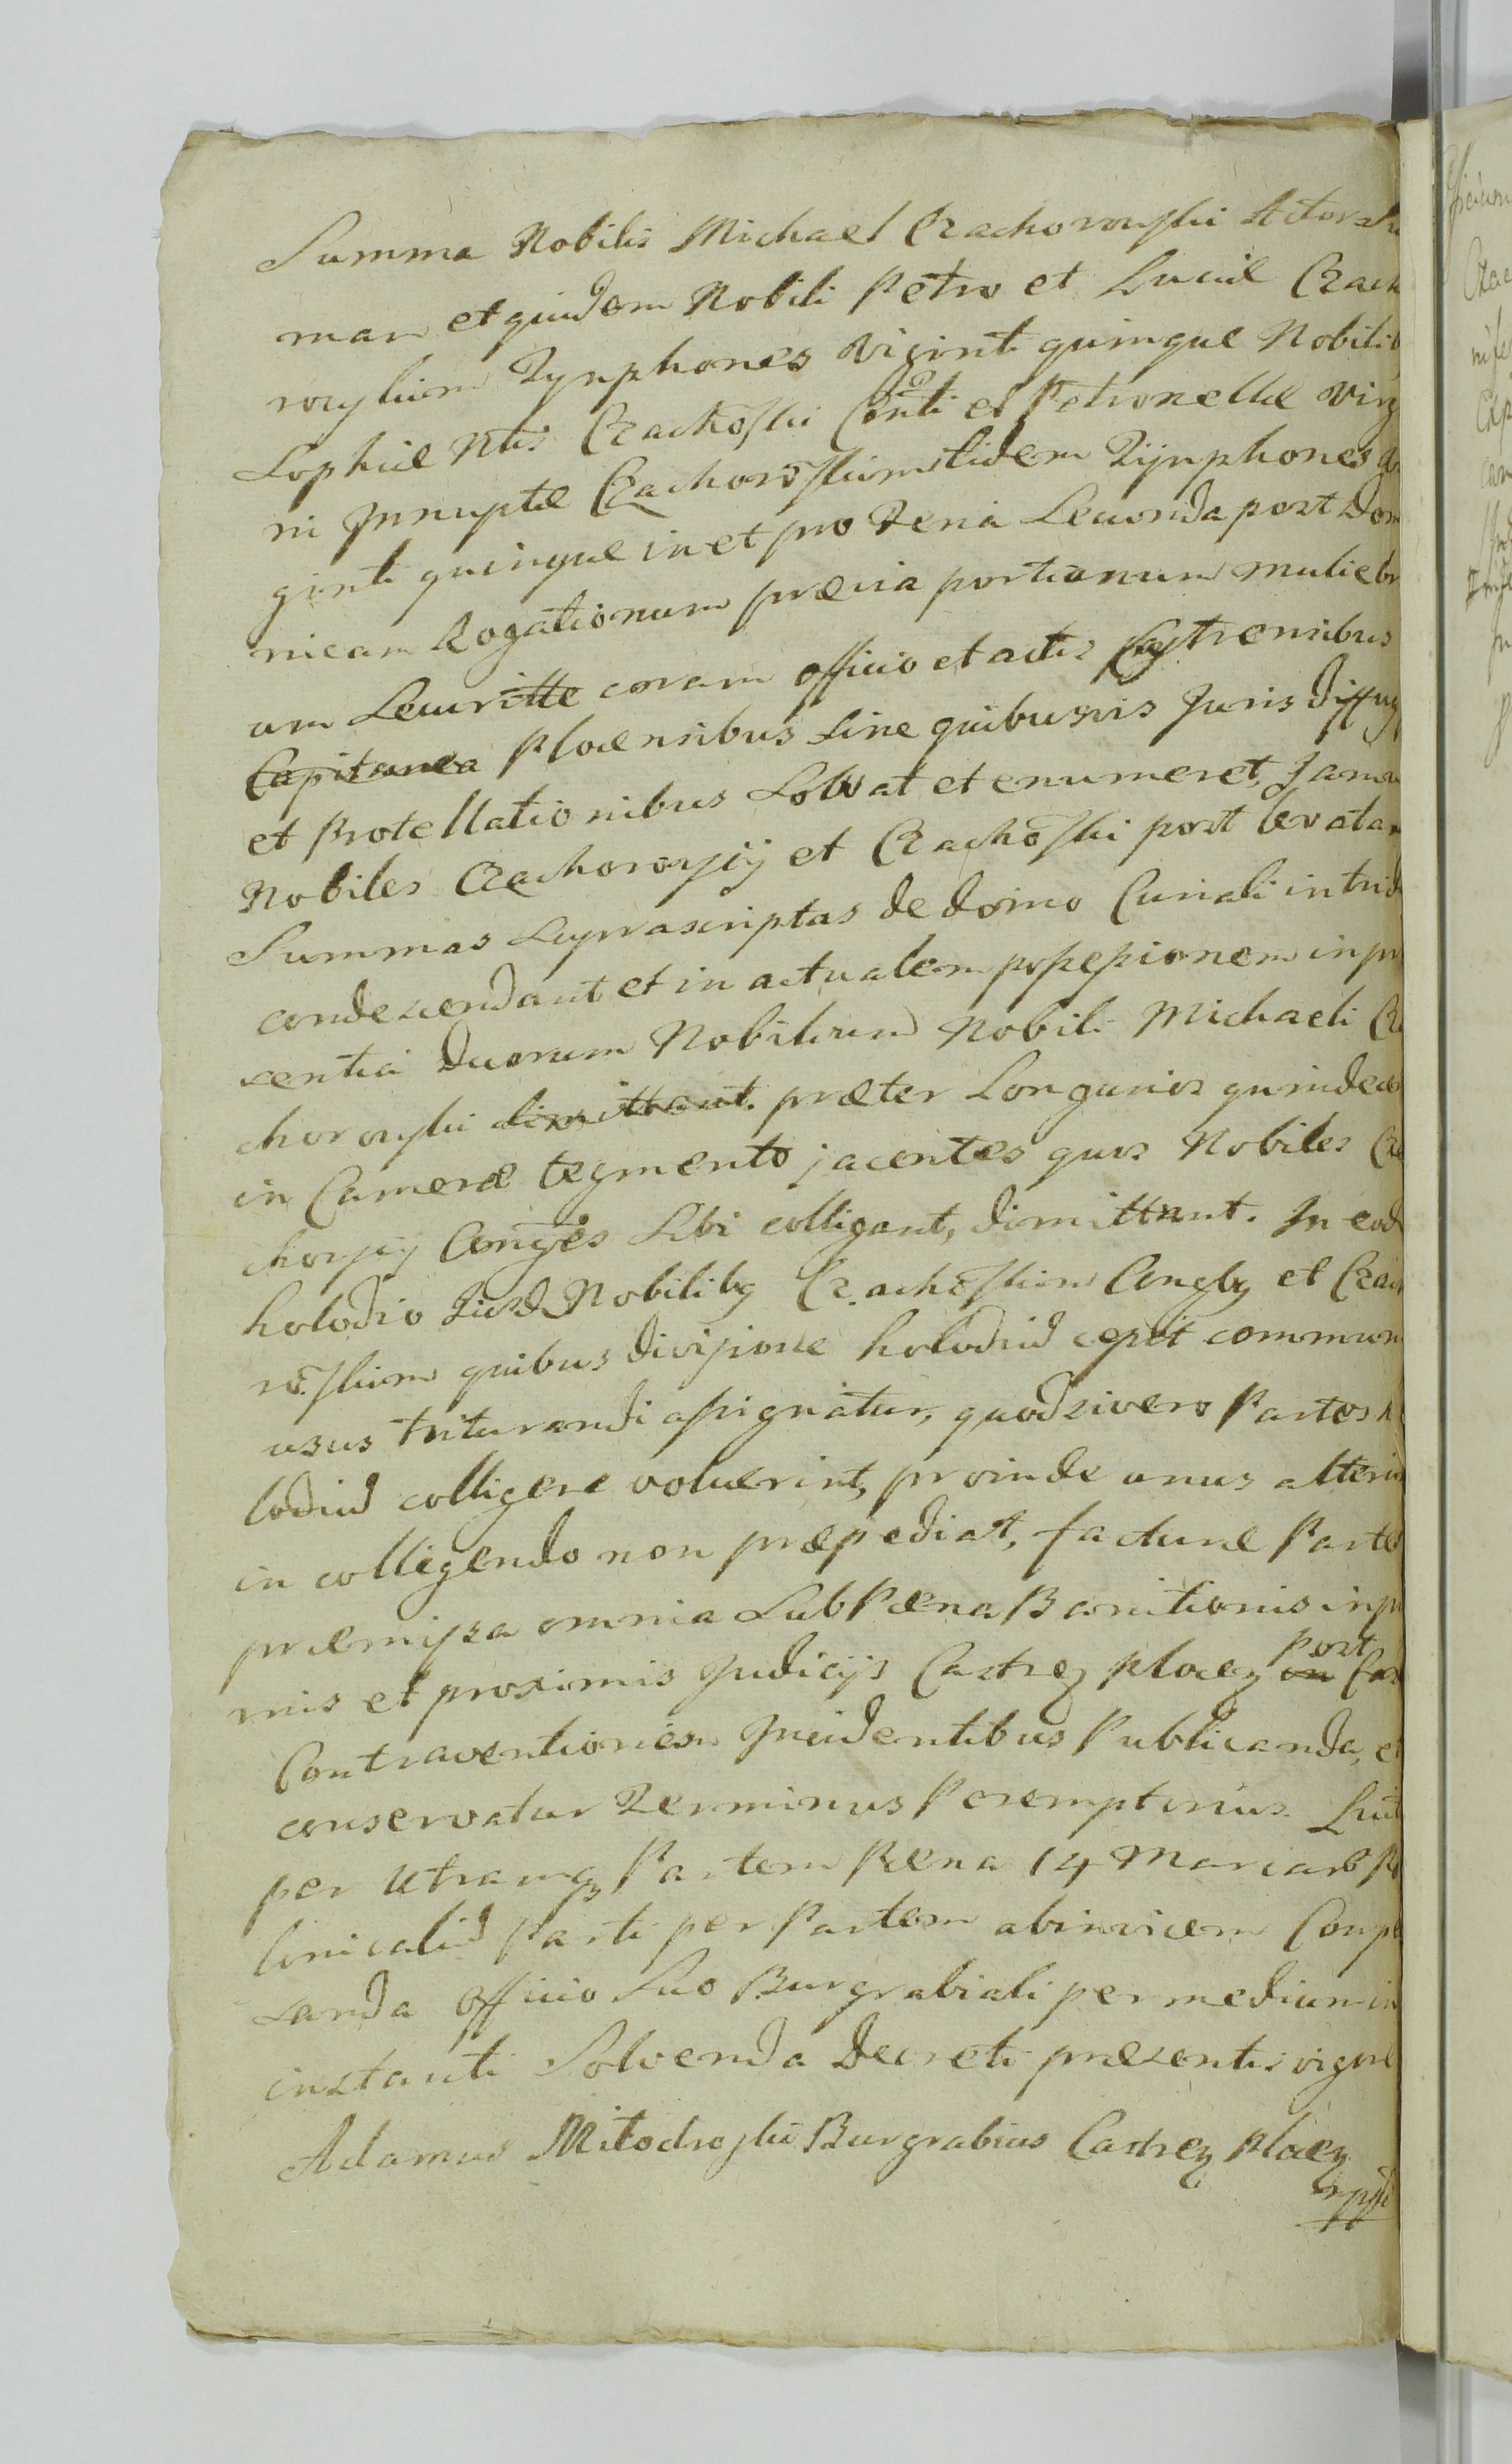 Summa Nobilis Michael Czachorowski Actor Su
mam et quidem Nobili Petro et Luciæ Czach
rowskim Tynphones viginti quinque Nobilib
Sophiæ Nbis Czachōski Conti et Petronellæ virg
ni Innuptæ Czachorōskiom tidem Tijnphones
ginti quinque in et pro Feria Secunda post Dom
nicam Rogationum prævia portionum muliebr
um Securitte coram officio et actis Castrensibus
Capitanea Plocensibus sine quibusvis Juris diffug
et Protestationibus Solvat et enumeret, Jam
Nobiles Czachorowscij et Czachōski post levatam
Summas suprascriptas de domo Curiali in trid
condescendant et in actualem possessionem in pr
sentia duorum Nobilium Nobili Michaeli Cz
chorowski dimittant præter Longurios quindecē
in Cameræ tegmento jacentes quos Nobiles Cz
chowscij Conges Sibi colligant, dimittant. In eod
holodio Nobilibq Czachōskim Congbq et Czach
rōskim quibus divisione holodiū cessit commun
usus triturandi assignatur, quodsi vero Partes h
lodiū colligere voluerint, proinde unus alteri
in colligendo non præpediat, facturæ Partes
præmissa omnia Sub Pæna Banitionis in pr
mis et proximis Judicijs Castreq Ploceq in post Cas
Contraventionem Incidentibus Publicanda, et
conservatur Terminus Peremptorius. Luit
per utramq Partem Pæna 14 Marcarū Po
lonicaliū Parti per Partem abinvicem Compe
sanda Officio Suo Burgrabiali per medium in
instanti Solvenda Decreti præsentis vigore
Adamus Miłodroski Burgrabius Castreq Ploceq